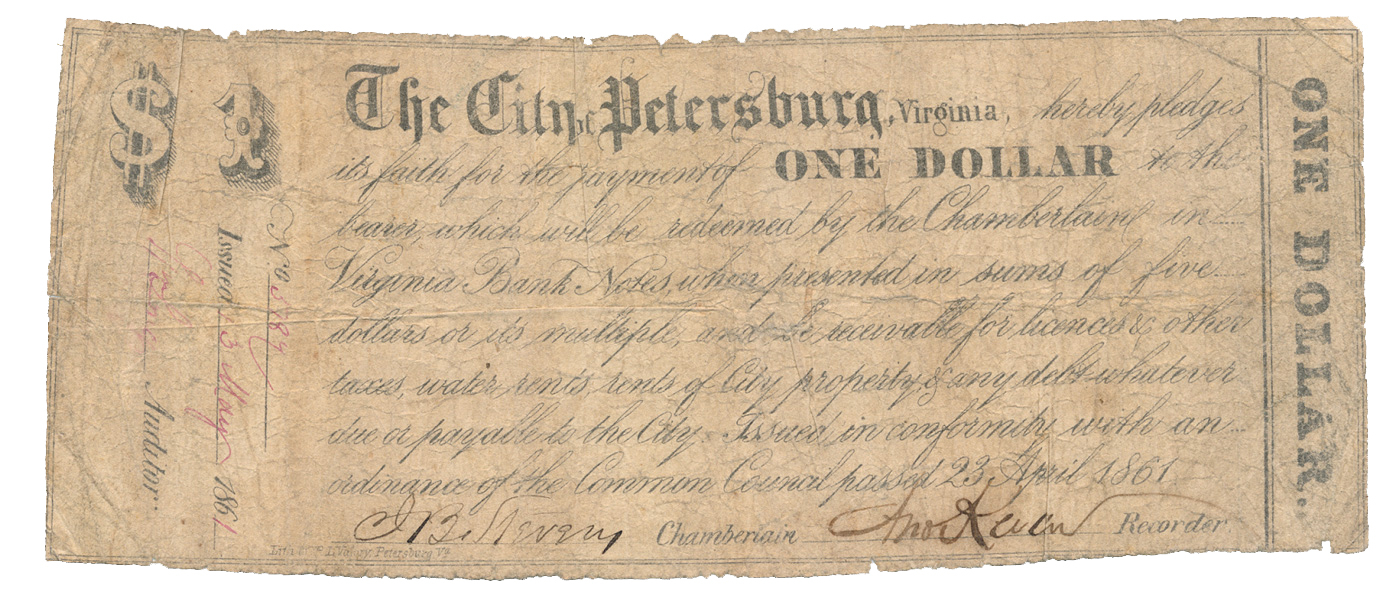 $
1
No 5184
Issued 3 May 1861
Auditor.
The City of Petersburg, Virginia, hereby pledges
its faith for the payment of ONE DOLLAR to the
bearer, which will be redeemed by the Chamberlain in
Virginia Bank Notes, when presented in sums of five
dollars or its multiple, and be receivable for licences & other
taxes, water rents, rents of City property, & any debt whatever
due or payable to the City. Issued in conformity with an
ordinance of the Common Council passed 23 April 1861
J B. Stevens Chamberlain Jno Kevan Recorder
Petersburg Va.
ONE DOLLAR.